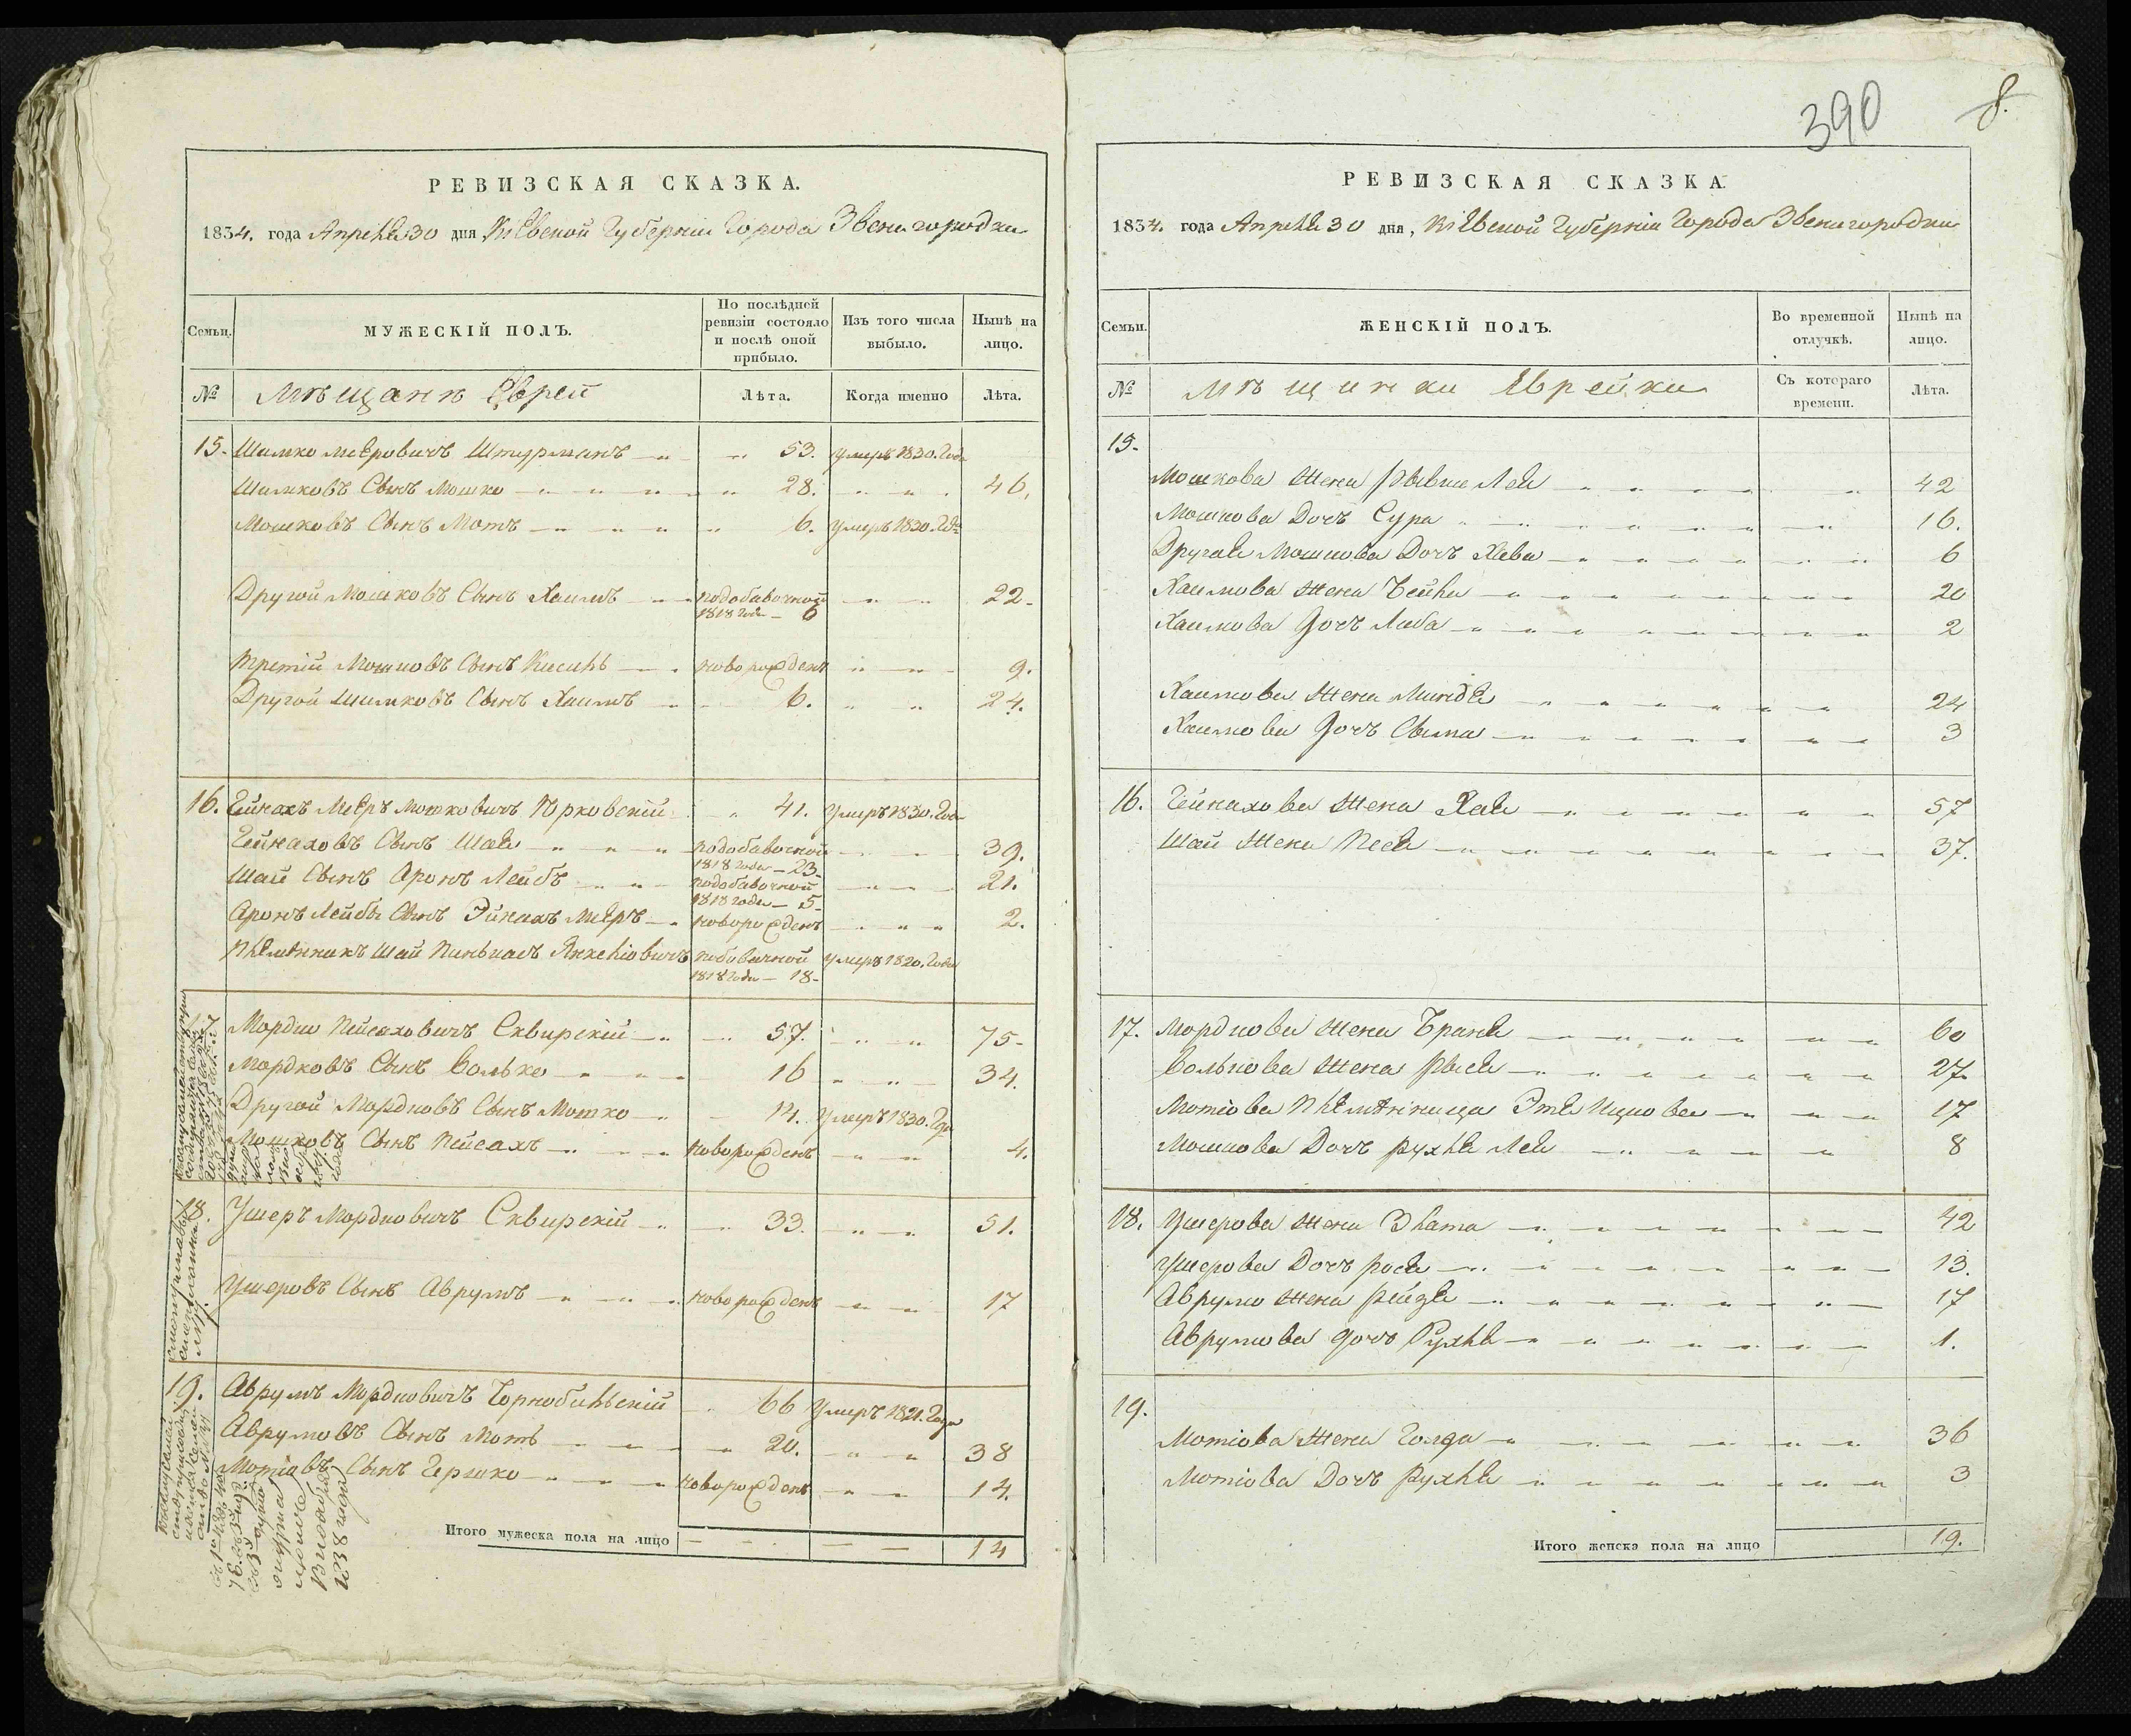 390
8.
РЕВИЗСКАЯ СКАЗКА.
1834. года Апреля 30 дня Кіевской Губерніи Города Звенигородки
Семьи.
МУЖЕСКІЙ ПОЛЪ.
По послѣдней ревизіи состояло и послѣ оной прибыло.
Изъ того числа выбыло.
Нынѣ на лицо.
№ Мѣщанѣ Евреи Лѣта. Когда именно Лѣта.
15. Шимко Меѣровичъ Штурманъ 53. умеръ 1830. Года
Шимковъ Сынъ Мошко 28. 46.
Мошковъ Сынъ Мотъ 6. умеръ 1830. Года
Другой Мошковъ Сынъ Хаимъ подобавочной 22.
1818 года 6
Третій Мошковъ Сынъ новорожденъ 9.
Другой Шимковъ Сынъ Хаимъ 6. 24.
16. Гейнахъ Меѣръ Мошковичъ 41. Умеръ 1830. Года
Гейнаховъ Сынъ Шая подобавочной 39.
1818 года 23
Шаи Сынъ Аронъ Лейбъ подобавочной 21.
1818 года 5
Аронъ Лейбы Сынъ Эйнахъ Меѣръ новорожденъ 2.
Племѣнникъ Шаи Пиньхасъ Янкеліовичъ умеръ 1820. Года
1818 Года 18
17 Мордко Пейсаховичъ Сквирскій 57. 75
Мордковъ Сынъ Волько 16 34.
Другой Мордковъ Сынъ Мошко 14. Умеръ 1830. Года
Мошковъ Сынъ Пейсахъ новорожденъ 4.
18. Ушеръ Мордковичъ Сквирскій 33. 51.
Ушеровъ Сынъ Аврумъ новорожденъ 17
19. Аврумъ Мордковичъ Чорнобильскій 66 Умеръ 1821. Года
Аврумовъ Сынъ Мотъ 20. 38
Мотіовъ Сынъ Гершко новорожденъ 14.
Итого мужеска пола на лицо 14
РЕВИЗСКАЯ СКАЗКА.
1834. года Апреля 30 дня, Кіевской Губерніи Города Звенигородки
Семьи.
ЖЕНСКІЙ ПОЛЪ.
Во временной отлучкѣ.
Нынѣ на лицо.
№ Мѣщанки Еврейки Съ котораго времени. Лѣта.
15.
Мошкова Жена Рывка Лея 42
Мошкова Дочъ Сура 16.
Другая Мошкова Дочъ Хава 6
Хаимова Жена Бейла 20
Хаимова Дочъ Либа 2
Хаимова Жена Миндя 24
Хаимова Дочъ Сыма 3
16. Гейнахова Жена Хая 57
Шаи Жена Песя 37.
17. Мордкова Жена Браня 60
Волькова Жена Рыся 27
Мотіова Племѣнница Этя Ицкова 17
Мошкова Дочъ Рухля Лея 8
18. Ушерова Жена Злата 42
Ушерова Дочъ Рося 13.
Аврумо Жена Рейзя 17
Аврумова Дочъ Рухля 1.
19.
Мотіова Жена Голда 36
Мотіова Дочъ Рухля 3
Итого женска пола на лицо 19.